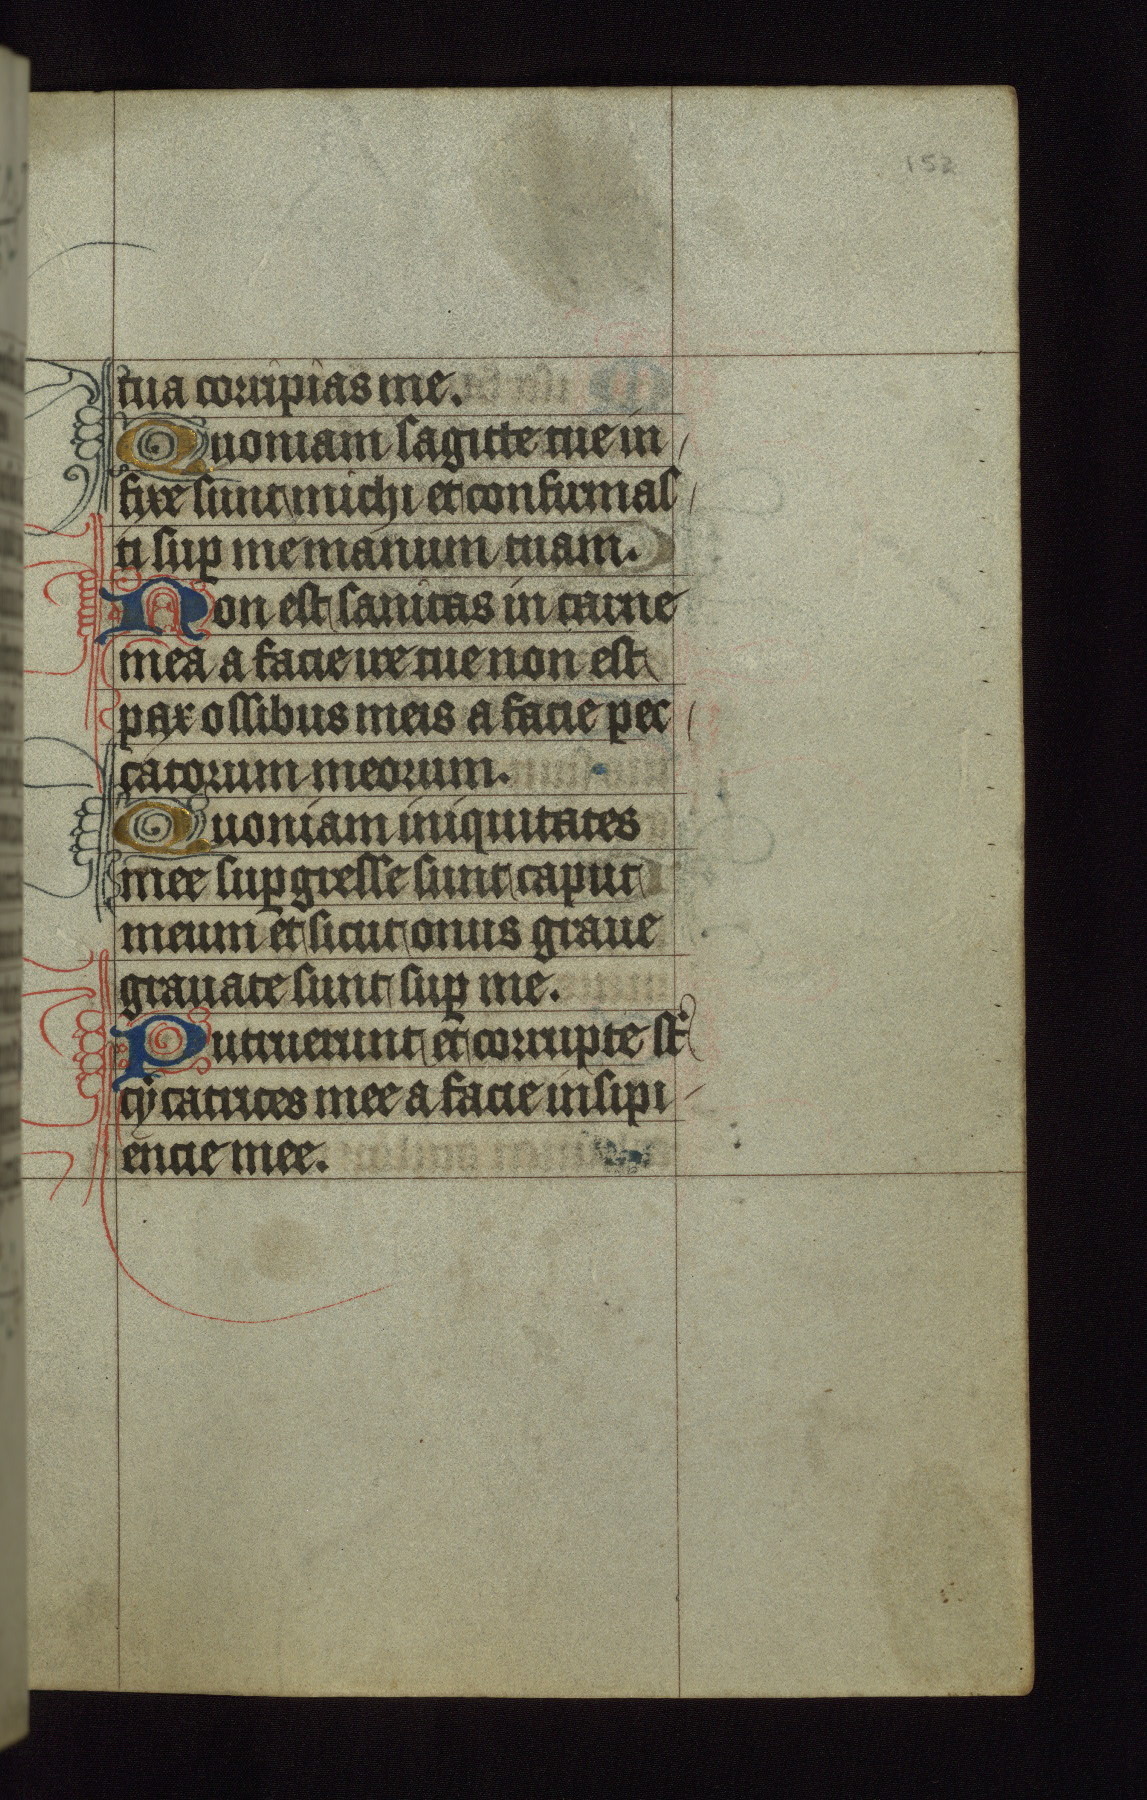 152
tua corripias me.
Quoniam sagitte tue in
fixe sunt michi et confirmas
ti sup me manum tuam.
Non est sanitas in carne
mea a facie ire tue non est
pax ossibus meis a facie pec
catorum meorum.
Quoniam iniquitates
mee supgresse sunt caput
meum et sicut onus graue
grauate sunt sup me.
Putruerunt et corrupte st
cycatrices mee a facie insipi
encie mee.